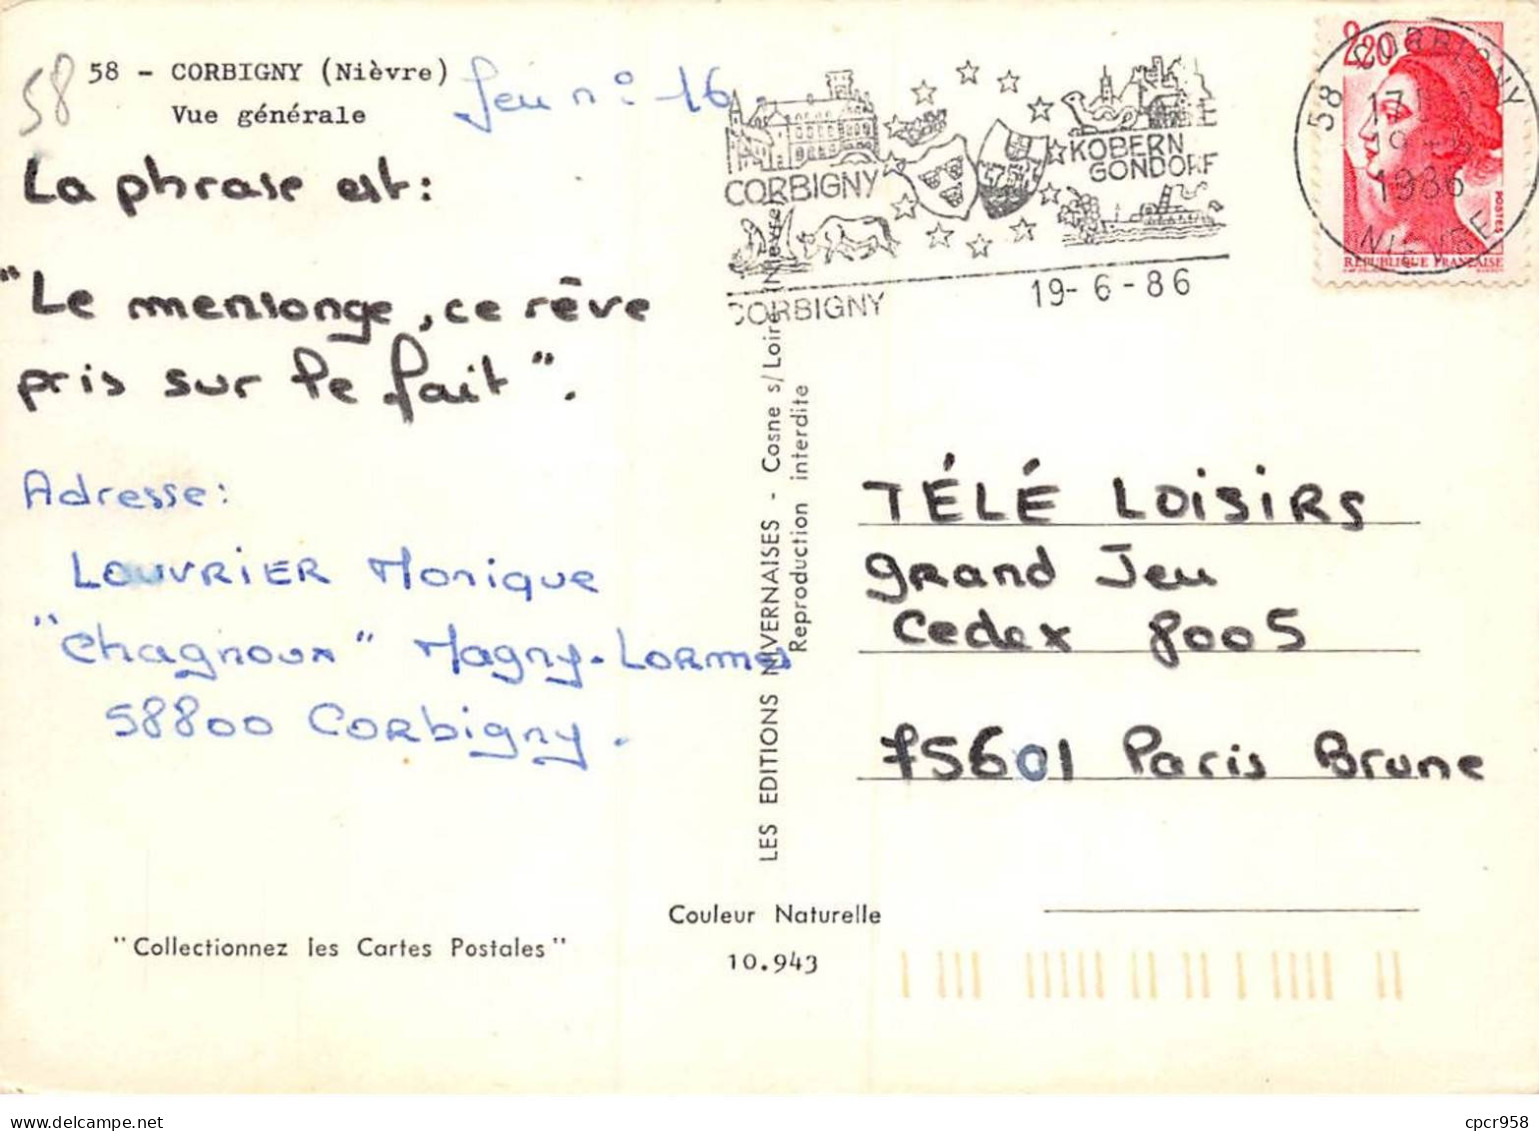 58
58 - CORBIGNY (Nièvre)
Vue générale
Jeu n° 16
La phrase est:
"Le mensonge, ce rêve
pris sur le fait".
Adresse:
LOUVRIER Monique
"Chagnoux" Magny-Lormes
58800 Corbigny.
"Collectionnez les Cartes Postales"
LES EDITIONS NIVERNAISES - Cosne s/Loire (Nièvre)
Reproduction interdite
Couleur Naturelle
10.943
CORBIGNY
KOBERN
GONDORF
CORBIGNY
19-6-86
2,20
POSTES
REPUBLIQUE FRANÇAISE
58 CORBIGNY
1986
NIEVRE
TÉLÉ LOISIRS
grand Jeu
Cedex 8005
75601 Paris Brune
cpcr958